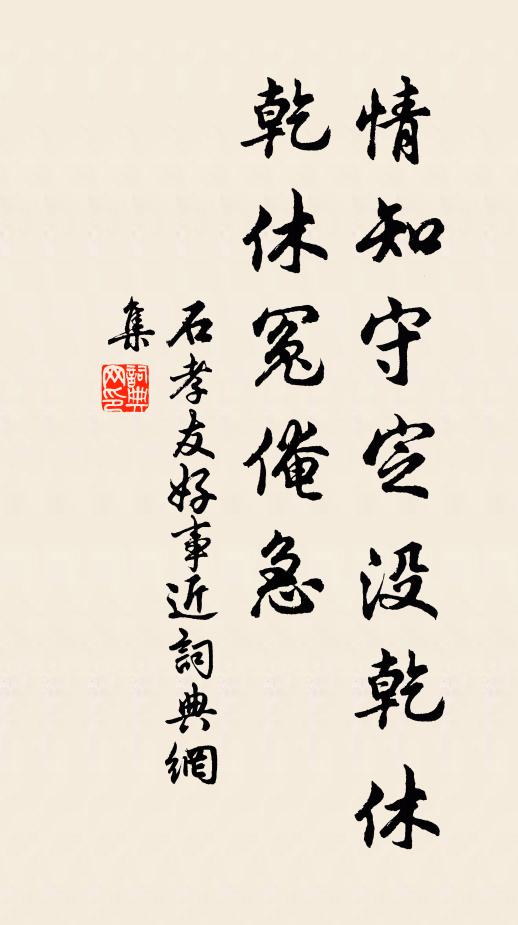 情知守定没乾休
乾休冤俺急
石孝友好事近詞典網
集
詞典
网印